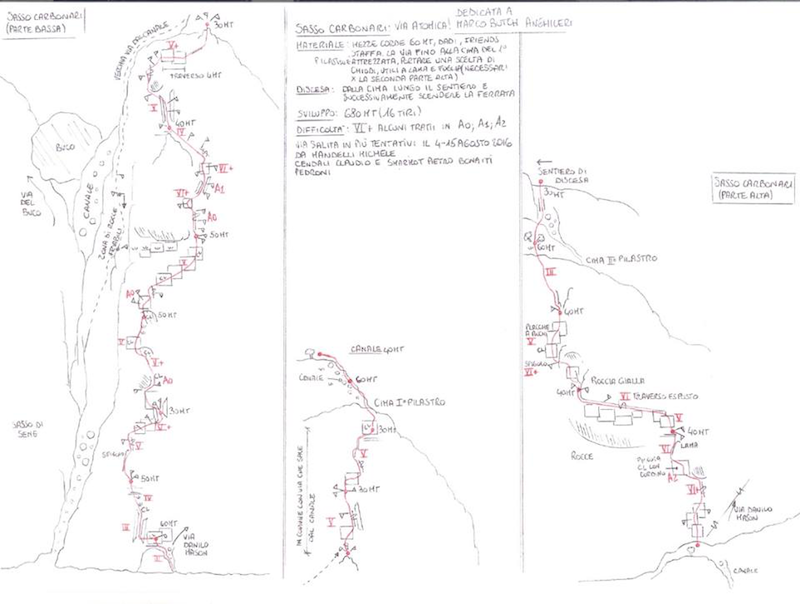 SASSO CARBONARI
(PARTE BASSA)
30MT
V+
TRAVERSO 4MT
V
40MT
BUCO
VIA
DEL
BUCO
CANALE
ZONA DI ROCCE
VI+
A1
VI+
A0
50MT
A0
50MT
V
V+
A0
30MT
VI+
SASSO DI
SENE
SPIGOLO
50MT
IV
CL
IV
40MT
VIA
DANILO
MASON
V
DEDICATA A
SASSO CARBONARI: VIA ATOMICA! MARCO BUTCH ANGHILERI
MATERIALE: MEZZE CORDE 60 MT, DADI, FRIENDS
STAFFA. LA VIA FINO ALLA CIMA DEL 1°
PILASTRO È ATTREZZATA, PORTARE UNA SCELTA DI
CHIODI, UTILI A LAMA E FOGLIA (NECESSARI
X LA SECONDA PARTE ALTA)
DISCESA: DALLA CIMA LUNGO IL SENTIERO E
SUCCESSIVAMENTE SCENDERE LA FERRATA
SVILUPPO: 680 MT (16 TIRI)
DIFFICOLTA': VI+ ALCUNI TRATTI IN A0, A1, A2
VIA SALITA IN PIÙ TENTATIVI: IL 4-15 AGOSTO 2016
DA MANDELLI MICHELE
CENDALI CLAUDIO E PIETRO BONAITI
PEDRONI
CANALE 40MT
60MT
CIMA I° PILASTRO
30MT
V
30MT
V
IN COMUNE CON VIA CHE SALE
DAL CANALE
SENTIERO DI
DISCESA
30MT
60MT
CIMA II° PILASTRO
III
SASSO CARBONARI
(PARTE ALTA)
40MT
PLACCHE
V
SPIGOLO
VI+
ROCCIA GIALLA
40MT
VI TRAVERSO ESPOSTO
V
40MT
LAMA
VI
ROCCE
CL CON
CORDINO
A2
VII+
VIA DANILO
MASON
CANALE